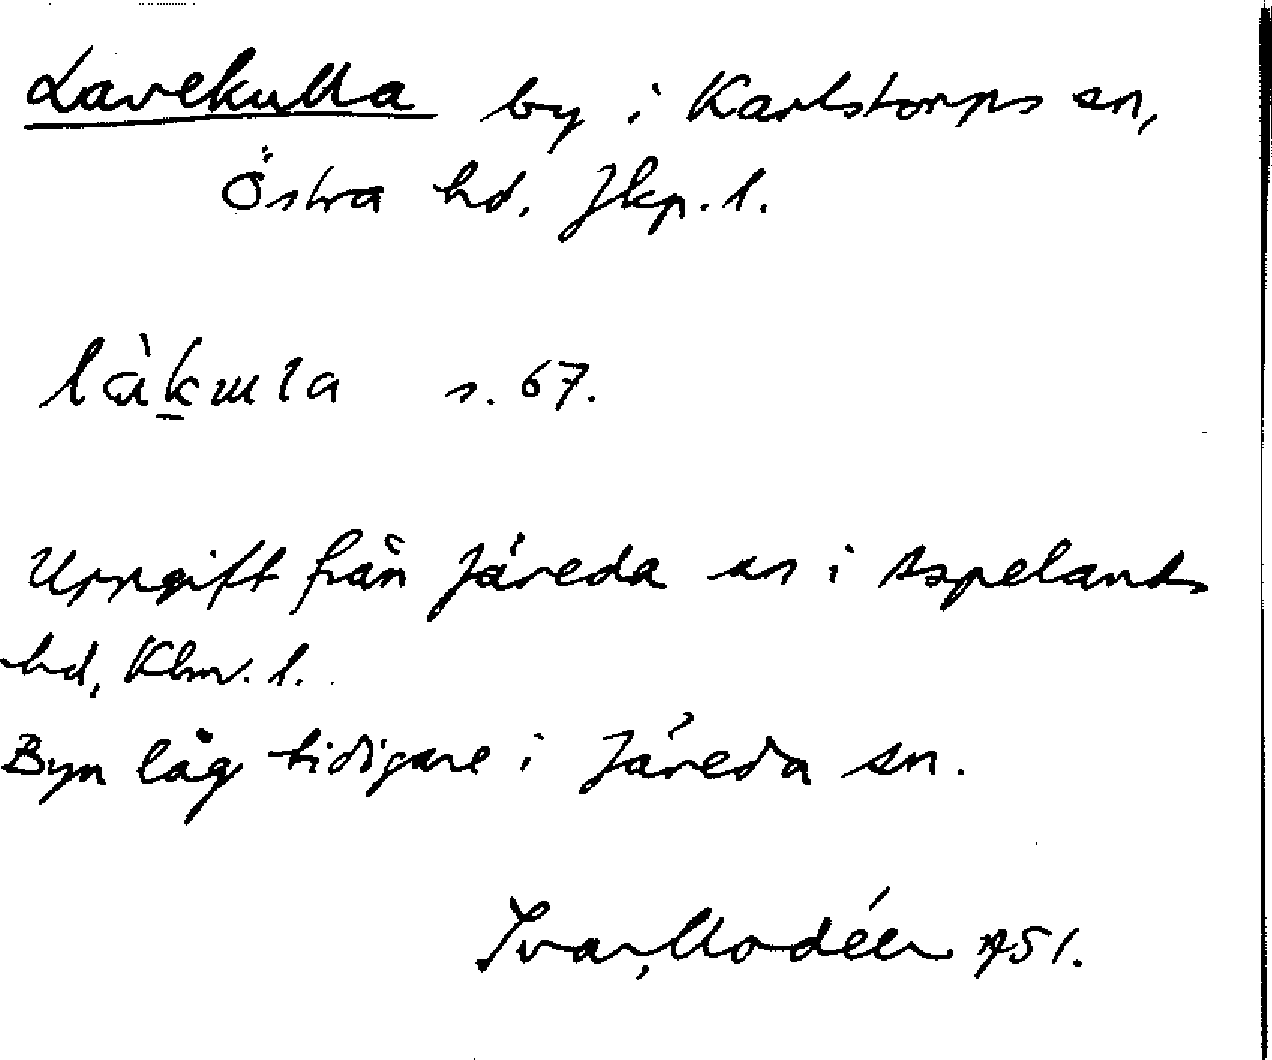 Lavekulla by i Karlstorps sn,
Östra hd. Jkp. l.
s. 67.
Uppgift från Järeda sn i Aspelands
hd, Klm. l.
Byn låg tidigare i Järeda sn.
Ivar Modéer 1951.